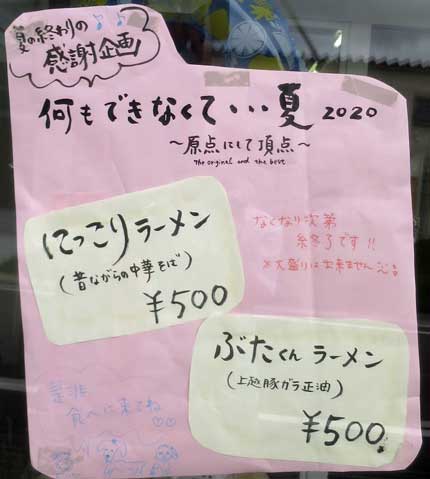 夏の終わりの♪♪
感謝企画
何もできなくて・・・夏 2020
～原点にして頂点～
The original and the best
にっこりラーメン
(昔ながらの中華そば)
¥500
なくなり次第
終了です!!
※大盛りは出来ません
ぶたくんラーメン
(上越豚ガラ正油)
¥500
是非
食べに来てね
♡♡